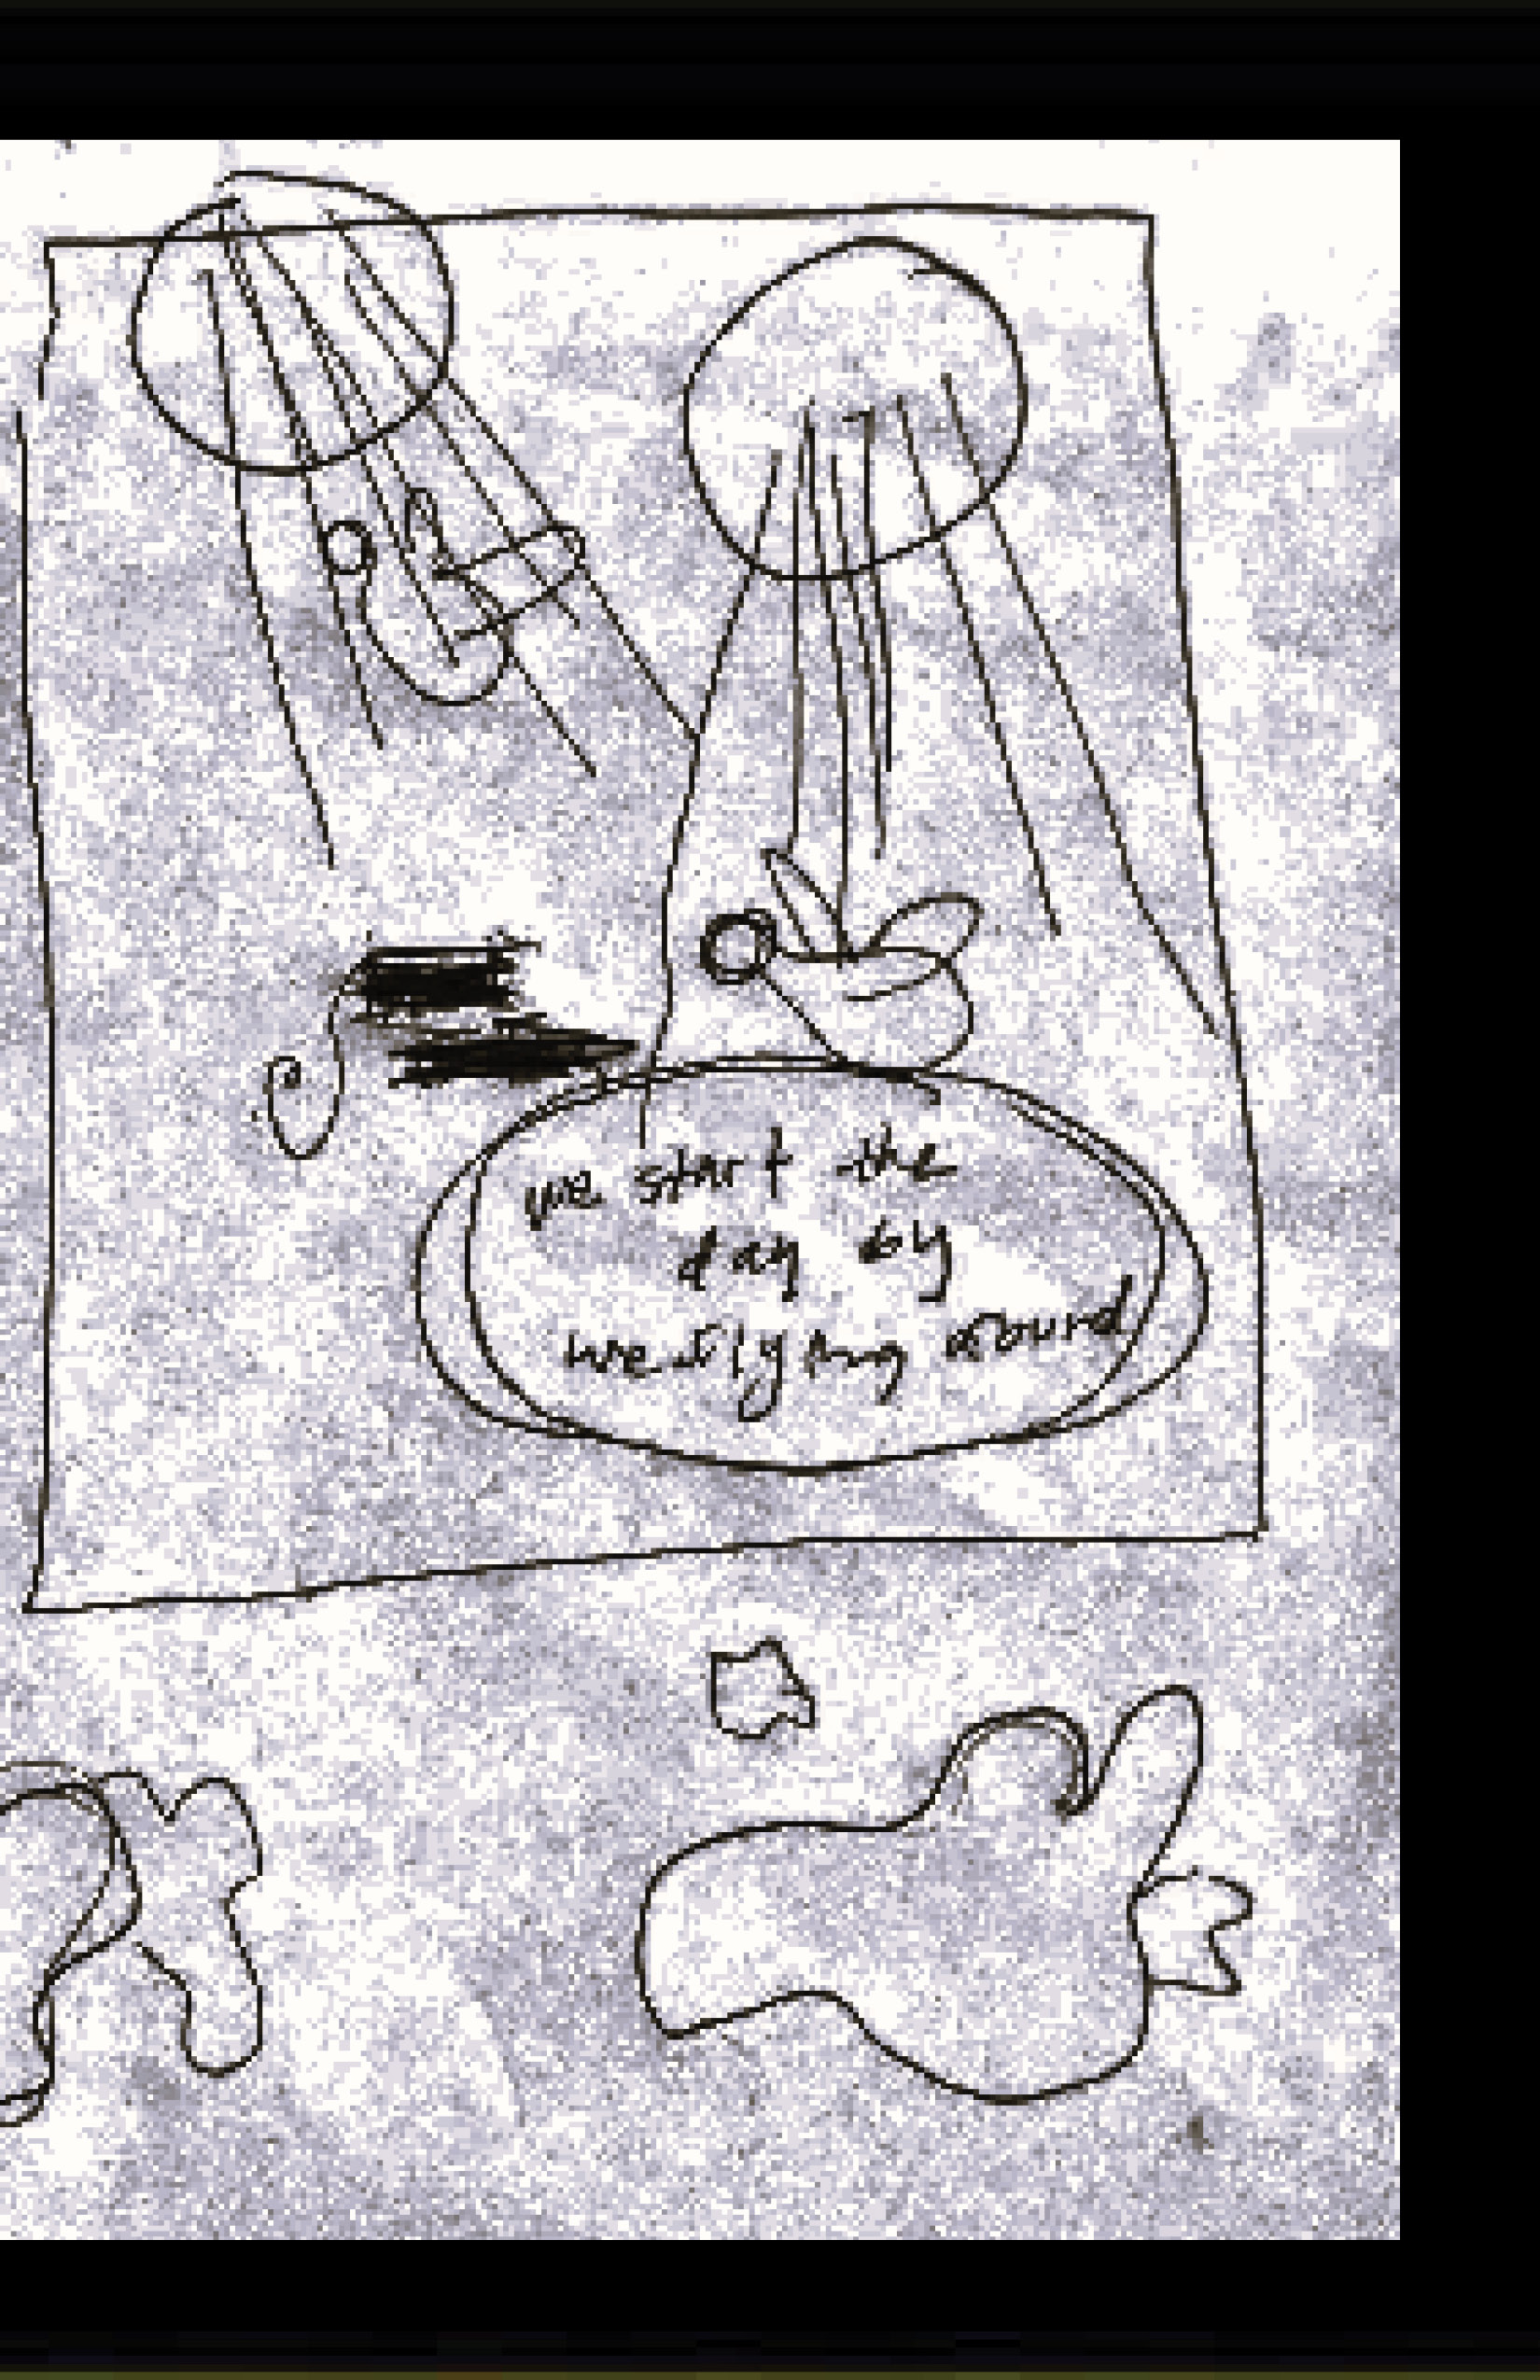 we start the
day by
we flying around